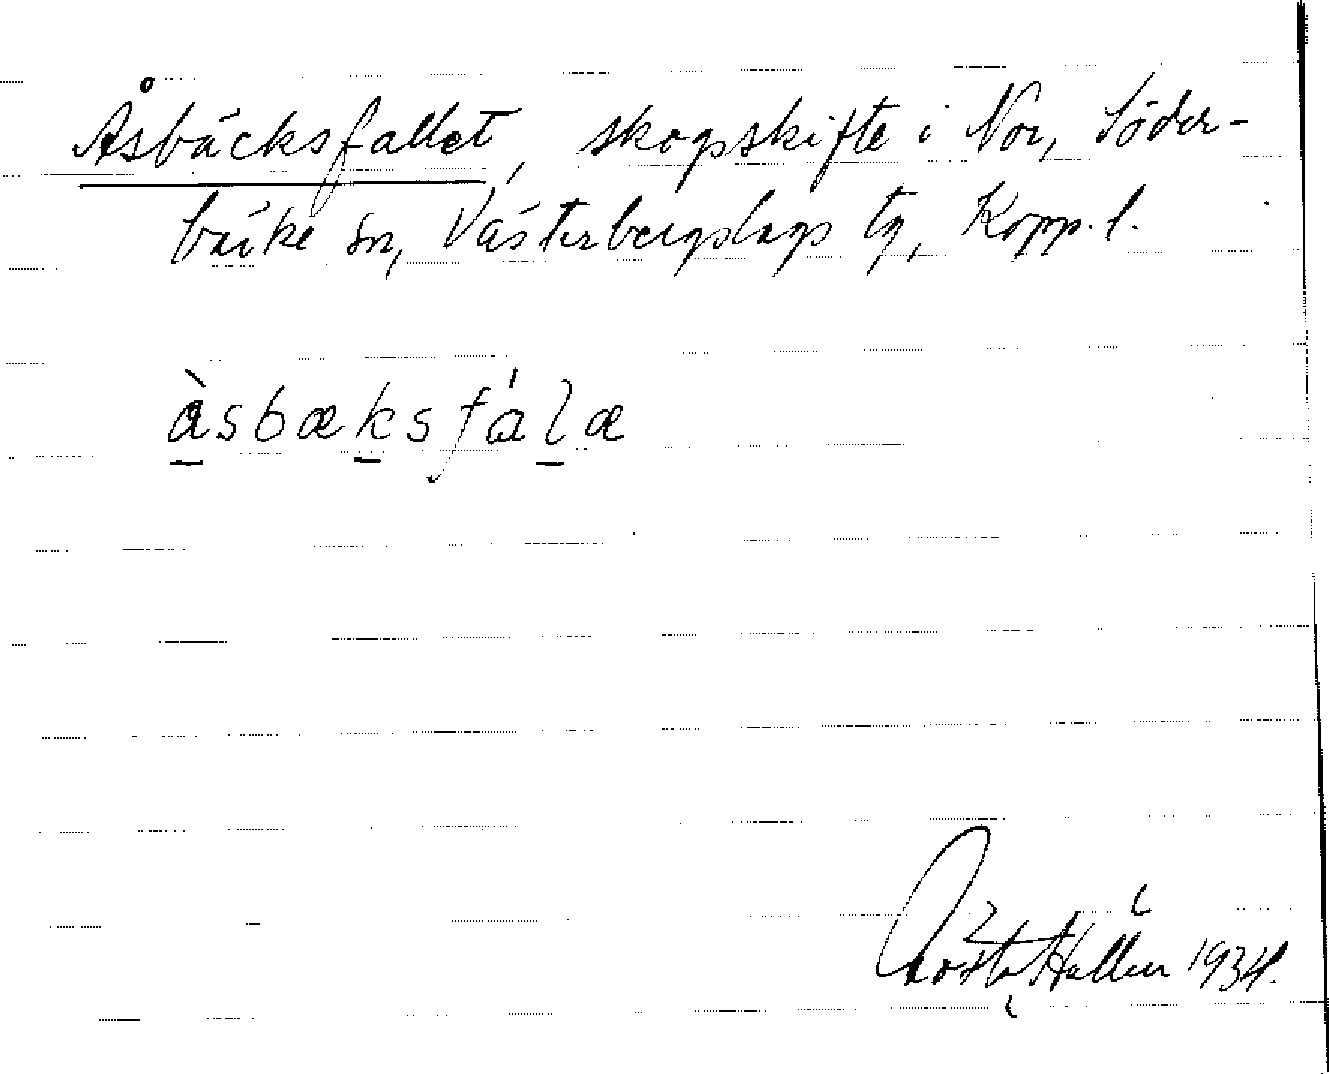 Åsbäcksfallet, skogsskifte i Nor, Söder-
bärke sn, Västerbergslags tg, Kopp. l.
àsbæksfálæ
Gösta Hallén 1934.